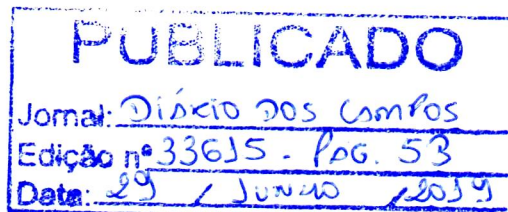 PUBLICADO
Jornal: DIÁRIO DOS CAMPOS
Edição nº 33615 - PAG. 5B
Data: 29 / JUNHO / 2019